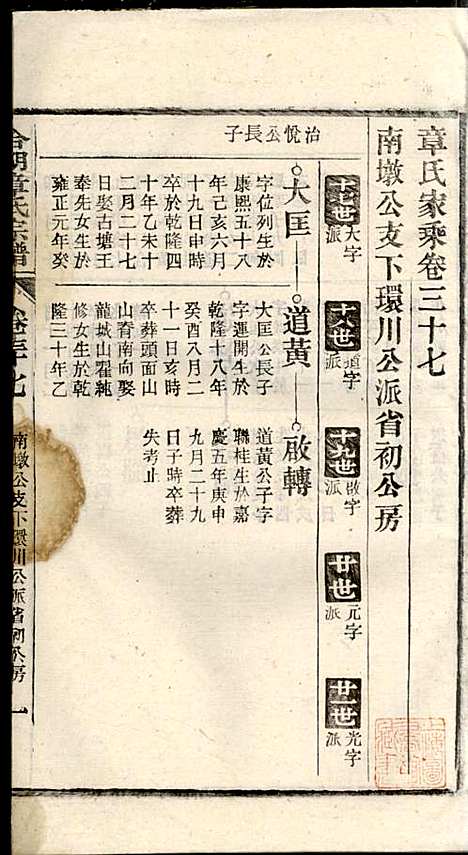 章氏家乘卷三十七
南墩公支下環川公派省初公房
十七世 大字派
十八世 道字派
十九世 啟字派
廿世 元字派
廿一世 光字派
治悅公長子
大匡
道黃
啟轉
字位列生於
康熙五十八
年己亥六月
十九日申時
卒於乾隆四
十年乙未十
二月二十七
日娶古塘王
奉先女生於
雍正元年癸
大匡公長子
字運開生於
乾隆十八年
癸酉八月二
十一日亥時
卒葬頭面山
山脊南向娶
龍城山翟純
修女生於乾
隆三十年乙
道黃公子字
聯桂生於嘉
慶五年庚申
九月二十九
日子時卒葬
失考止
章氏宗譜
卷三十七
南墩公支下環川公派省初公房
一